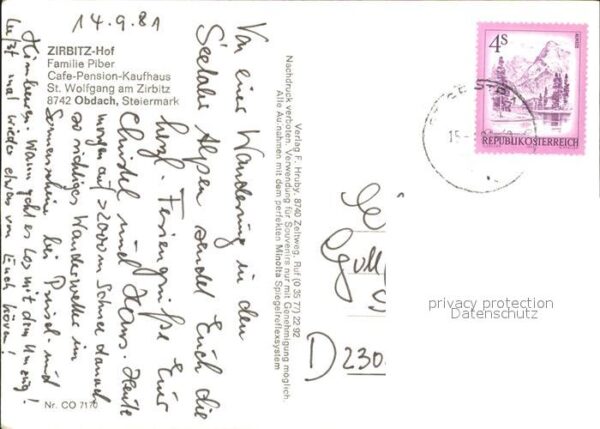 14.9.81
ZIRBITZ-Hof
Familie Piber
Cafe-Pension-Kaufhaus
St. Wolfgang am Zirbitz
8742 Obdach, Steiermark
Von einer Wanderung in den
Seetaler Alpen sendet Euch die
herzl. Feriengrüße Eure
Christel und Hans. Heute
morgen auf >2000 m Schnee danach
so richtiges Wanderwetter im
Sonnenschein bei und
Himbeeren. Wann geht es los mit dem Umzug!
Laßt mal wieder etwas von Euch hören!
Nr. CO 7170
Verlag F. Hruby, 8740 Zeltweg, Ruf (0 35 77) 22 92
Nachdruck verboten. Verwendung für Souvenirs nur mit Genehmigung möglich.
Alle Aufnahmen mit dem perfekten Minolta Spiegelreflexsystem
4S
ALMSEE
REPUBLIK ÖSTERREICH
D 230
privacy protection
Datenschutz